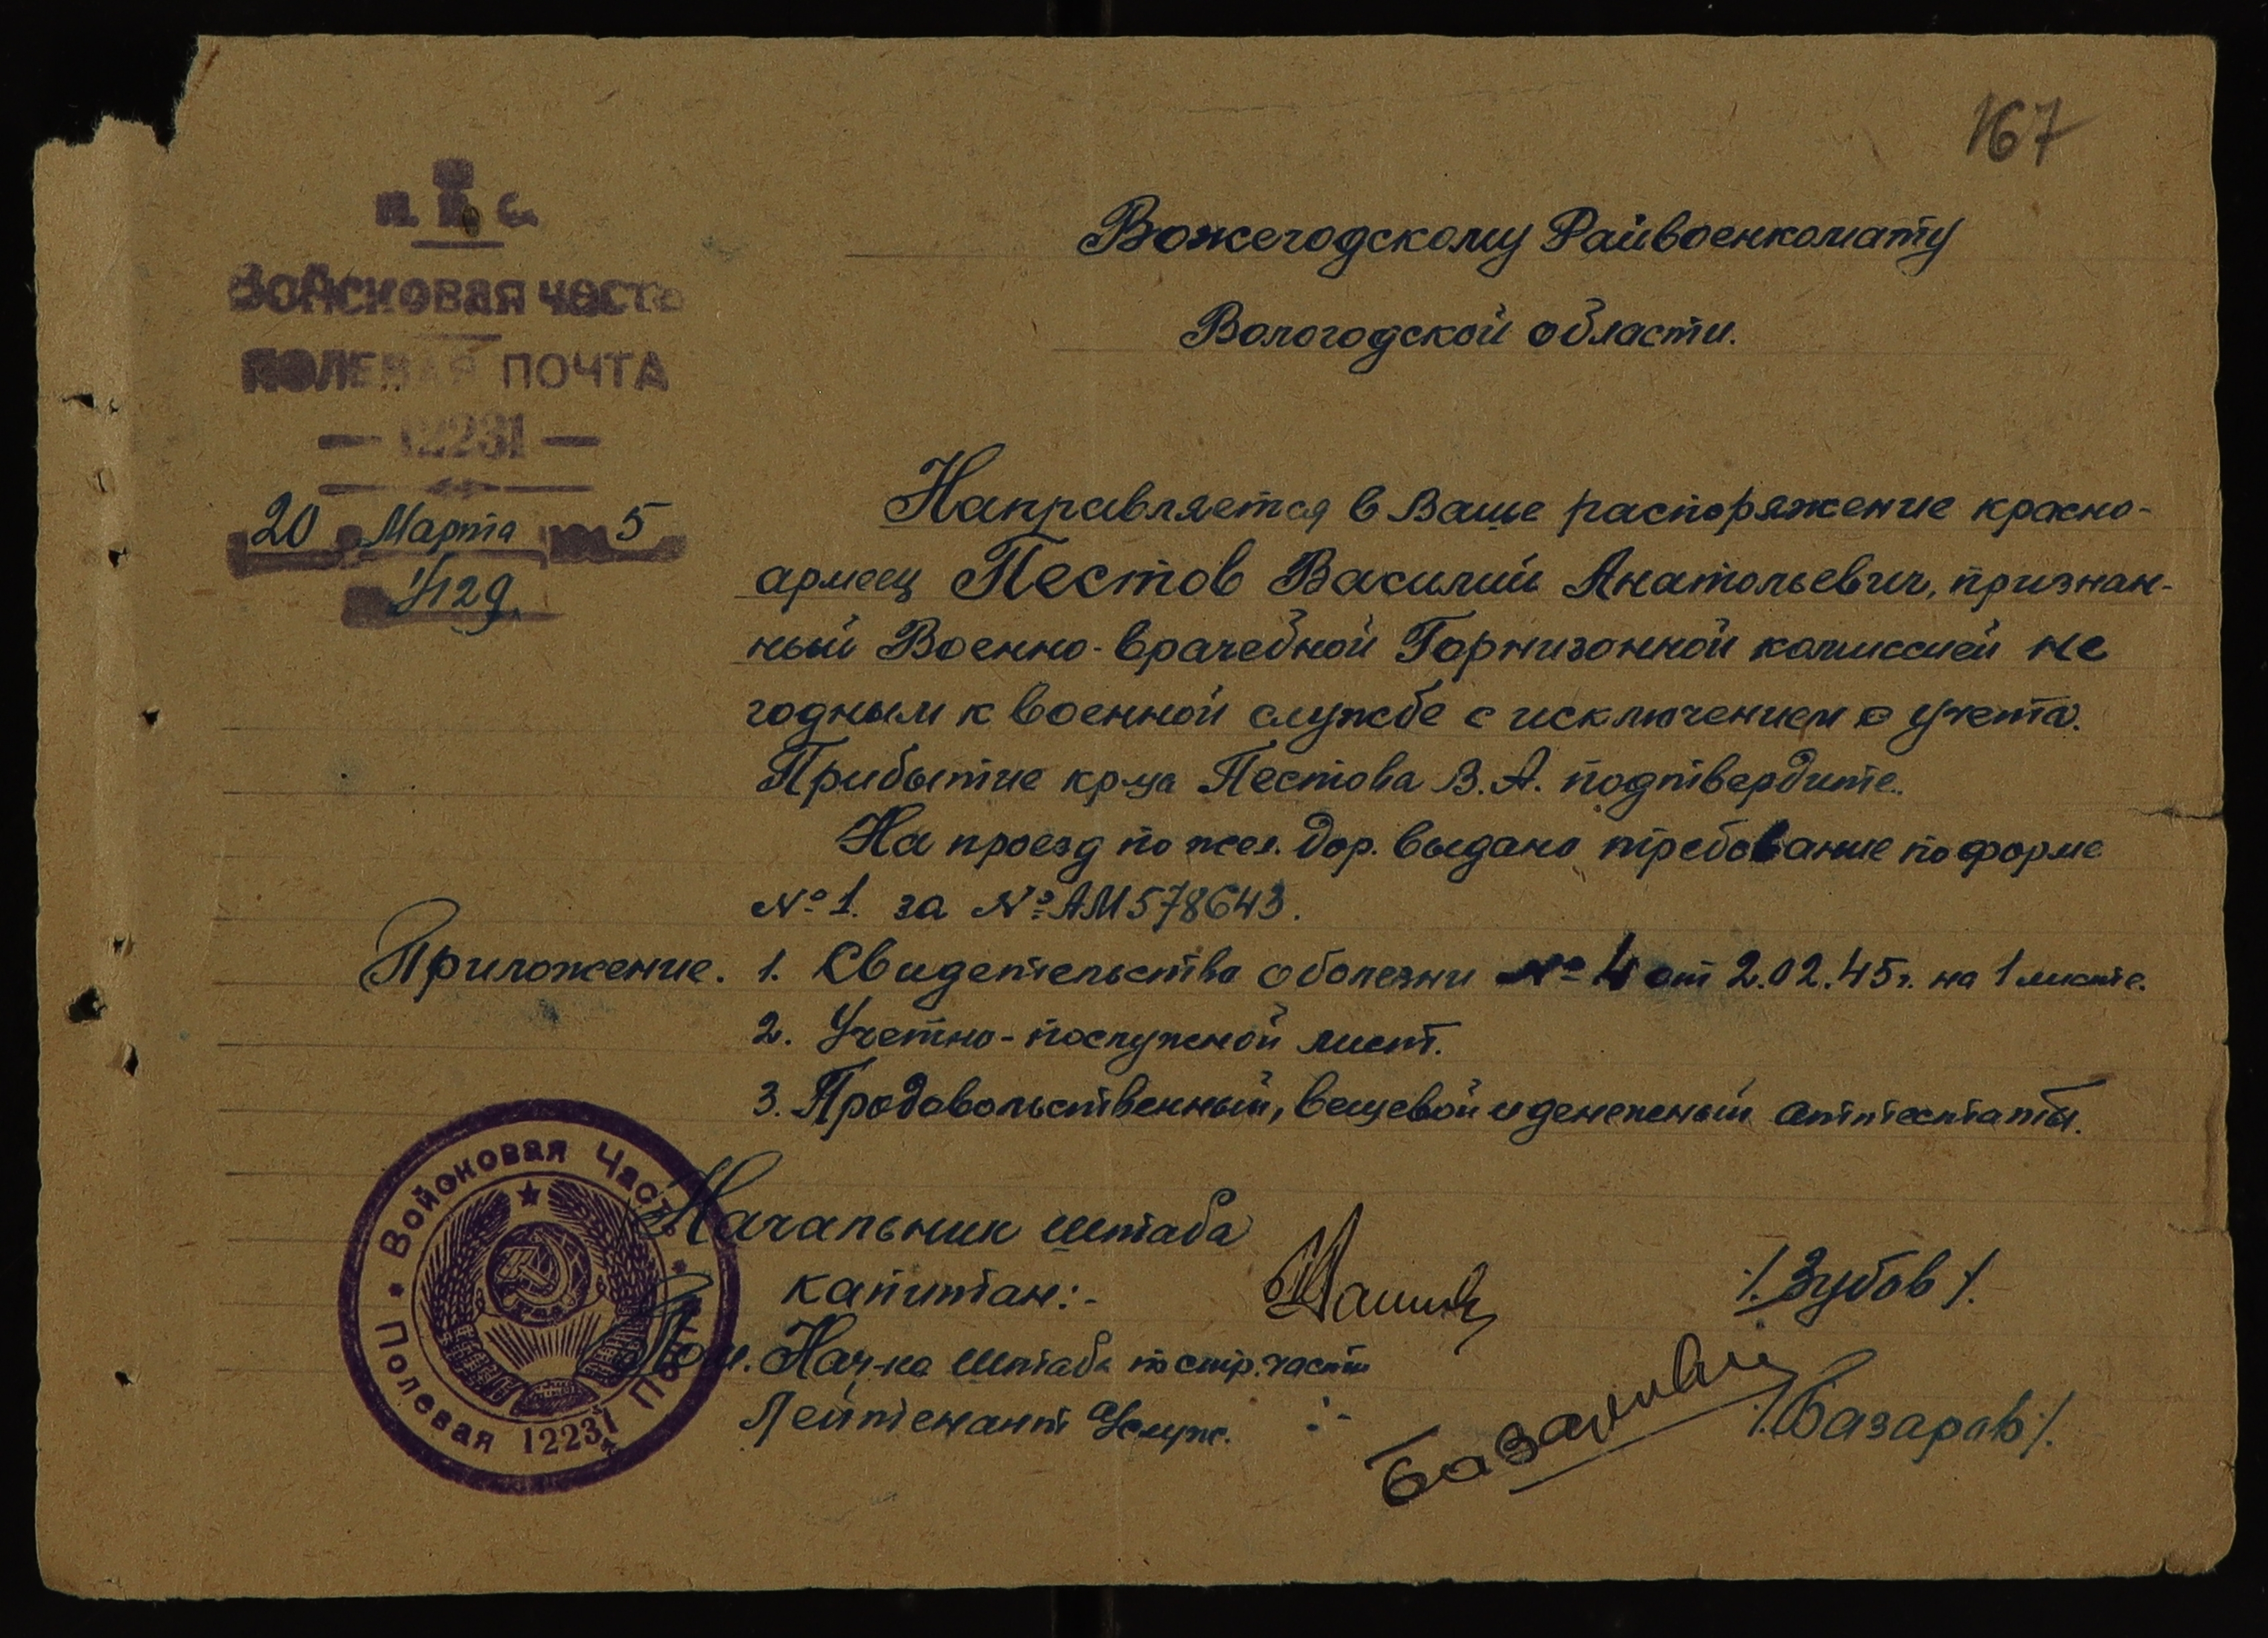 167
Н. К. О.
Войсковая часть
ПОЛЕВАЯ ПОЧТА
— 12231 —
20 Марта 5
1/129
Вожегодскому Райвоенкомату
Вологодской области.
Направляется в Ваше распоряжение красно-
армеец Пестов Василий Анатольевич, признан-
ный Военно-врачебной Гарнизонной комиссией не
годным к военной службе с исключением с учета.
Прибытие кр-ца Пестова В. А. подтвердите.
На проезд по жел. дор. выдано требование по форме
№ 1. за № АМ 578643.
Приложение. 1. Свидетельство о болезни № 4 от 2.02.45 г. на 1 листе.
2. Учетно-послужной лист.
3. Продовольственный, вещевой и денежный аттестаты.
Начальник штаба
капитан:-
/. Зубов /.
Пом. Нач-ка Штаба по стр. части
Лейтенант :-
/. Базаров /.
Войсковая Часть
Полевая Почта
12231